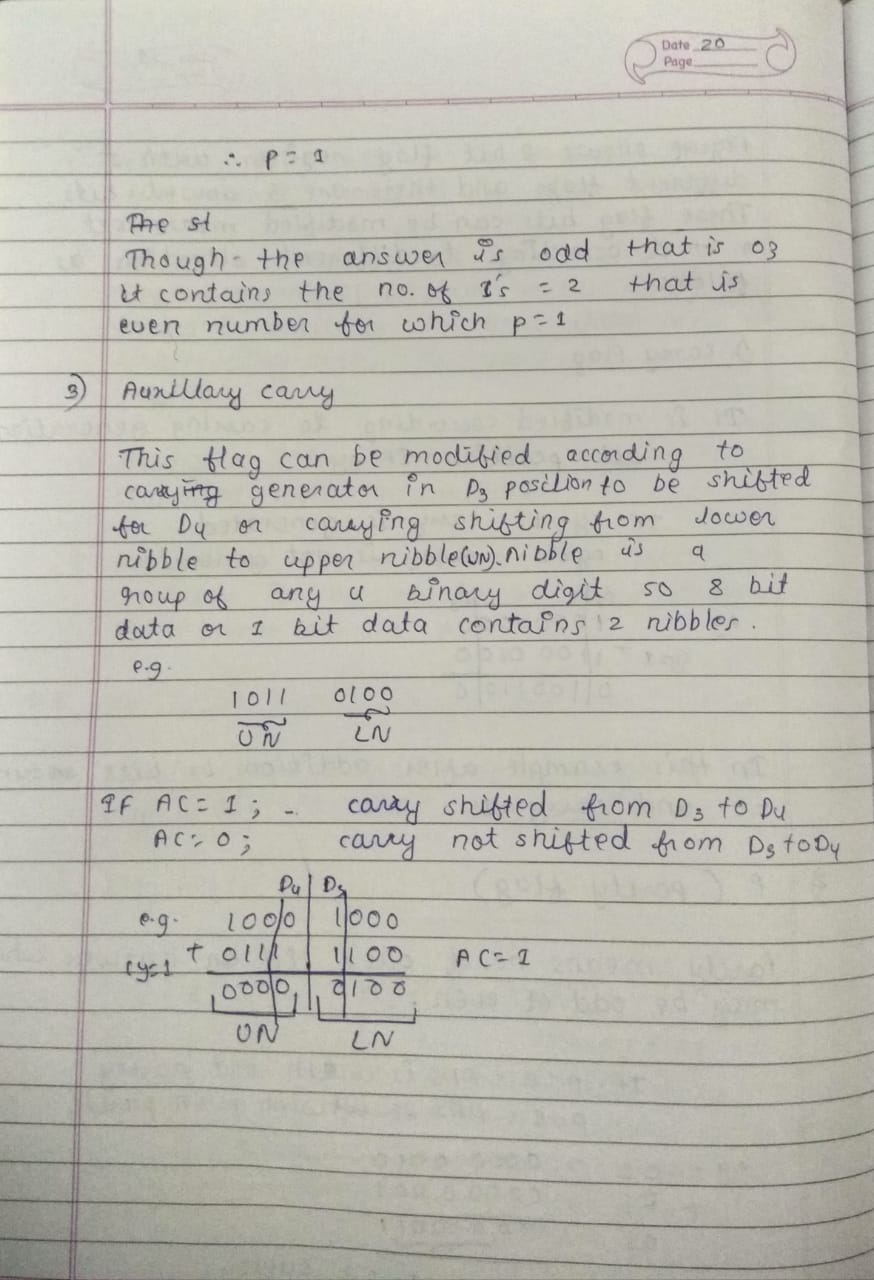 Date 20
Page
∴ P = 1
The st
Though the answer is odd that is 03
it contains the no. of 1's = 2 that is
even number for which p=1
3) Auxillary carry
This flag can be modified according to
carrying generator in D3 position to be shifted
for D4 or carrying shifting from lower
nibble to upper nibble(UN). nibble is a
group of any 4 binary digit so 8 bit
data or 1 bit data contains 2 nibbles.
e.g.
1011 0100
UN LN
IF AC = 1 ; - carry shifted from D3 to D4
AC = 0 ; carry not shifted from D3 to D4
D4 D3
e.g. 1000 1000
cy=1 + 0111 1100 AC = 1
0000 0100
UN LN